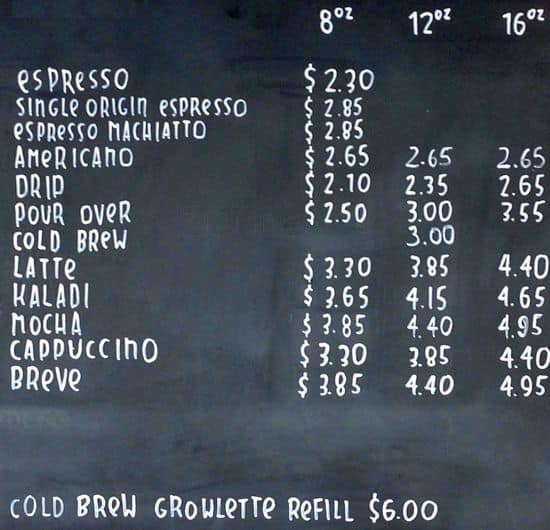 8oz 12oz 16oz
ESPRESSO $2.30
SINGLE ORIGIN ESPRESSO $2.85
ESPRESSO MACHIATTO $2.85
AMERICANO $2.65 2.65 2.65
DRIP $2.10 2.35 2.65
POUR OVER $2.50 3.00 3.55
COLD BREW 3.00
LATTE $3.30 3.85 4.40
KALADI $3.65 4.15 4.65
MOCHA $3.85 4.40 4.95
CAPPUCCINO $3.30 3.85 4.40
BREVE $3.85 4.40 4.95
COLD BREW GROWLETTE REFILL $6.00